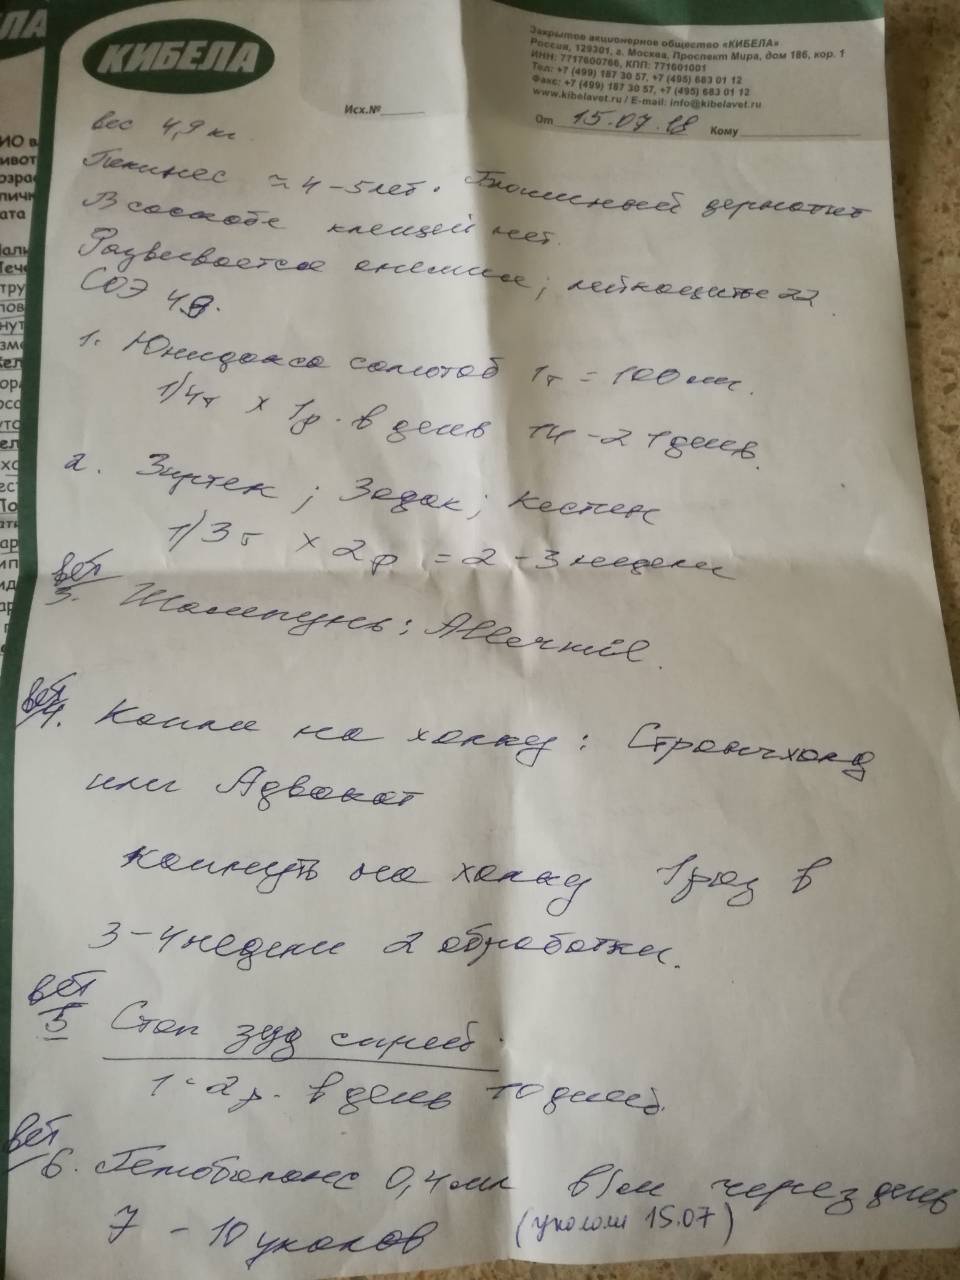 КИБЕЛА
Закрытое акционерное общество «КИБЕЛА»
Россия, 129301, г. Москва, Проспект Мира, дом 186, кор. 1
ИНН: 7717600766, КПП: 771601001
Тел: +7 (499) 187 30 57, +7 (495) 683 01 12
Факс: +7 (499) 187 30 57, +7 (495) 683 01 12
www.kibelavet.ru / E-mail: info@kibelavet.ru
Исх.№
От 15.07.18 Кому
вес 4,9 кг.
Пекинес ≈ 4-5 лет. Блошиный дерматит
В соскобе клещей нет.
Развивается анемия; лейкоциты 22
СОЭ 49.
1. Юнидокс солютаб 1т = 100 мг.
1/4т x 1р. в день 14-21 день.
2. Зиртек; Зодак; Кестин
1/3т x 2р = 2-3 недели
вет
3. Шампунь: Allermil.
вет
4. Капли на холку: Стронгхолд
или Адвокат
капнуть на холку 1 раз в
3-4 недели 2 обработки.
вет
5 Стоп зуд спрей.
1-2р. в день 10 дней.
вет
6. Гемобаланс 0,4 мл в/м через день
7-10 уколов (укололи 15.07)